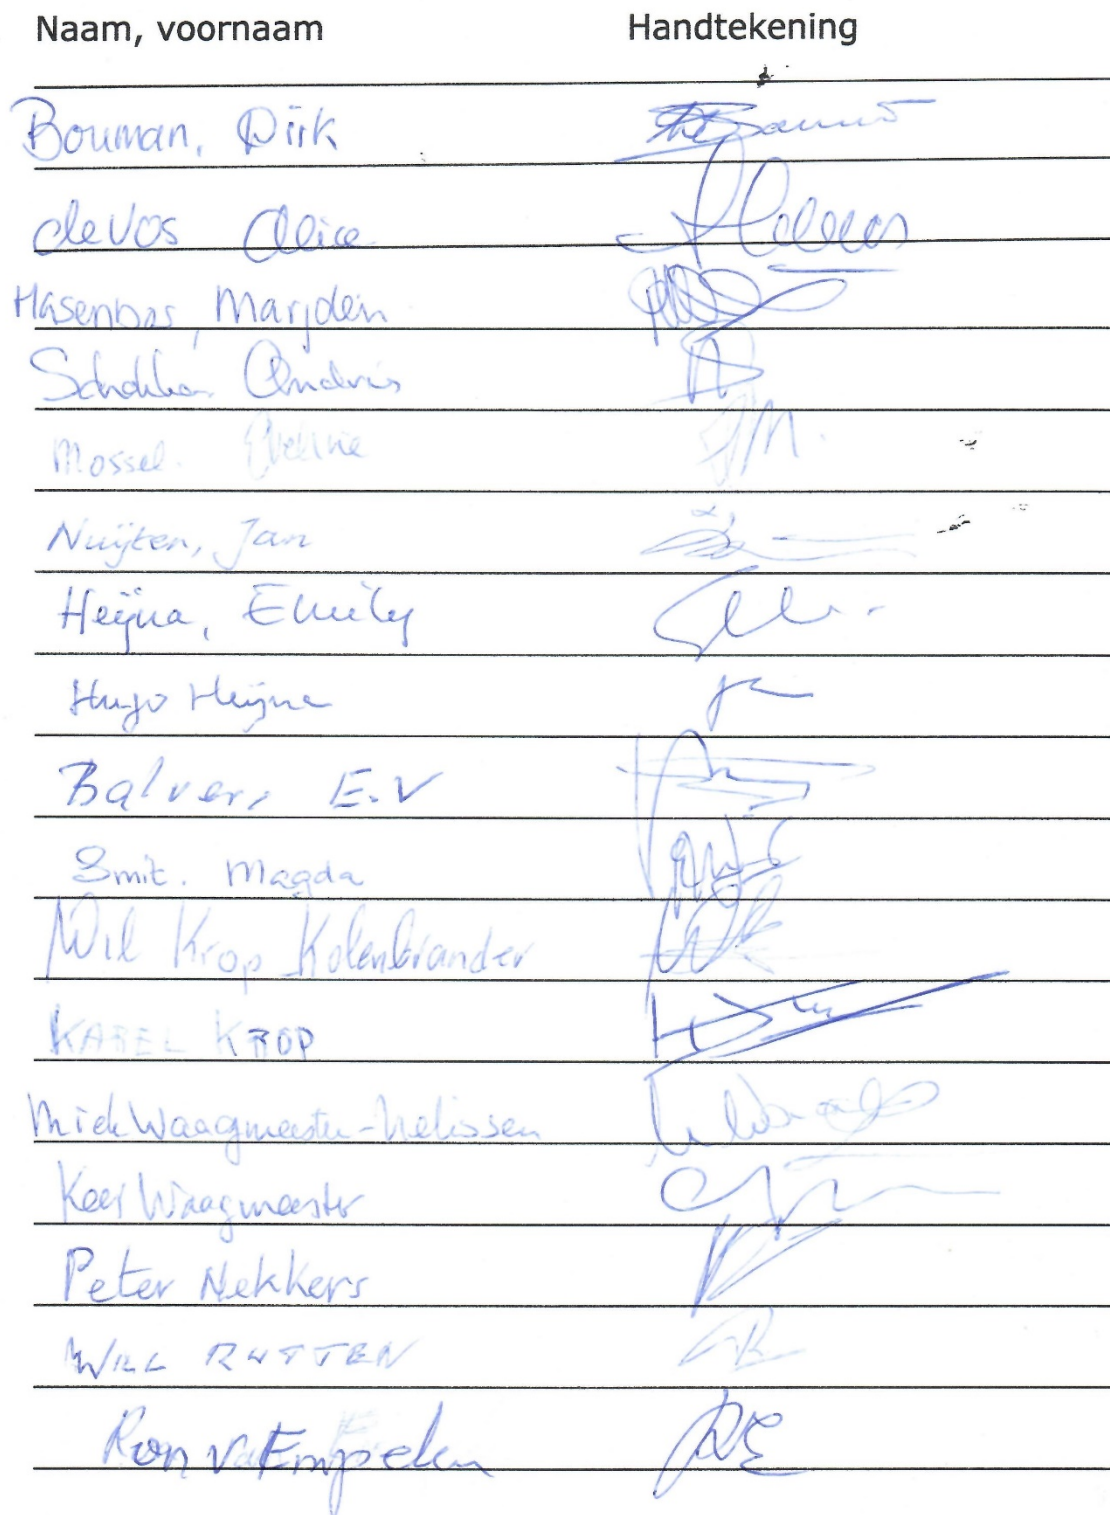 Naam, voornaam Handtekening
Bouman, Dirk
de Vos Alice
Hasenbos, Marjolein
Andris
Mossel. Eveline
Nuijten, Jan
Heijna, Emily
Hugo Heijna
Balvers E.V
Smit. Magda
Wil Krop Kolenbrander
KAREL KROP
Miek Waagmeester-Nelissen
Kees Waagmeester
Peter Nekkers
WILL RUTTEN
Ron v. Empelen